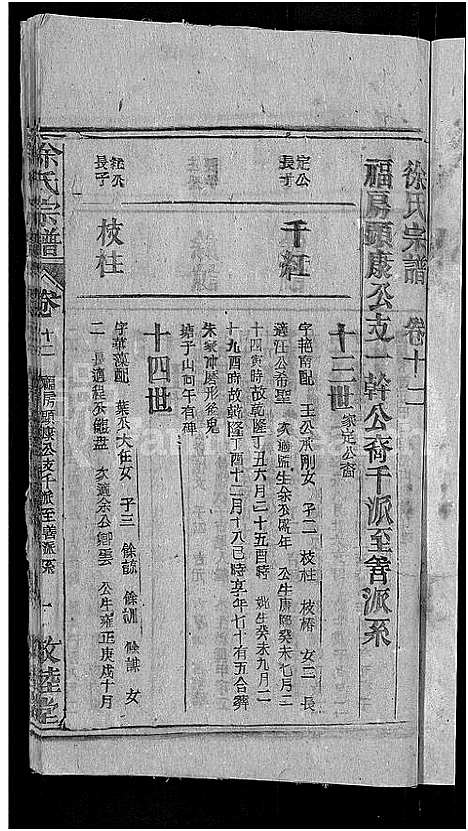 徐氏宗譜 卷十二
福房頭康公支一幹公裔千派至善派系
十三世 家定公裔
定公長子
千紅
字艳南配 王公承剛女 子二 枝柱 枝椿 女二 長
適汪公希聖 次適監生余公 年 公生康熙癸未七月二
十四寅時故乾隆丁丑六月二十五酉時 妣生癸未九月二
十九酉時故乾隆丁酉十二月十八巳時享年七十有五合葬
朱家 磨形 鬼
塘子山 午有碑
十四世
紅公長子
枝柱
字華 配 葉公大任女 子三 餘 餘訓 餘謀 女
二 長適程公 盘 次適余公 雲 公生雍正庚戌十月
徐氏宗譜 卷十二 福房頭康公支千派至善派系 一 敦睦堂